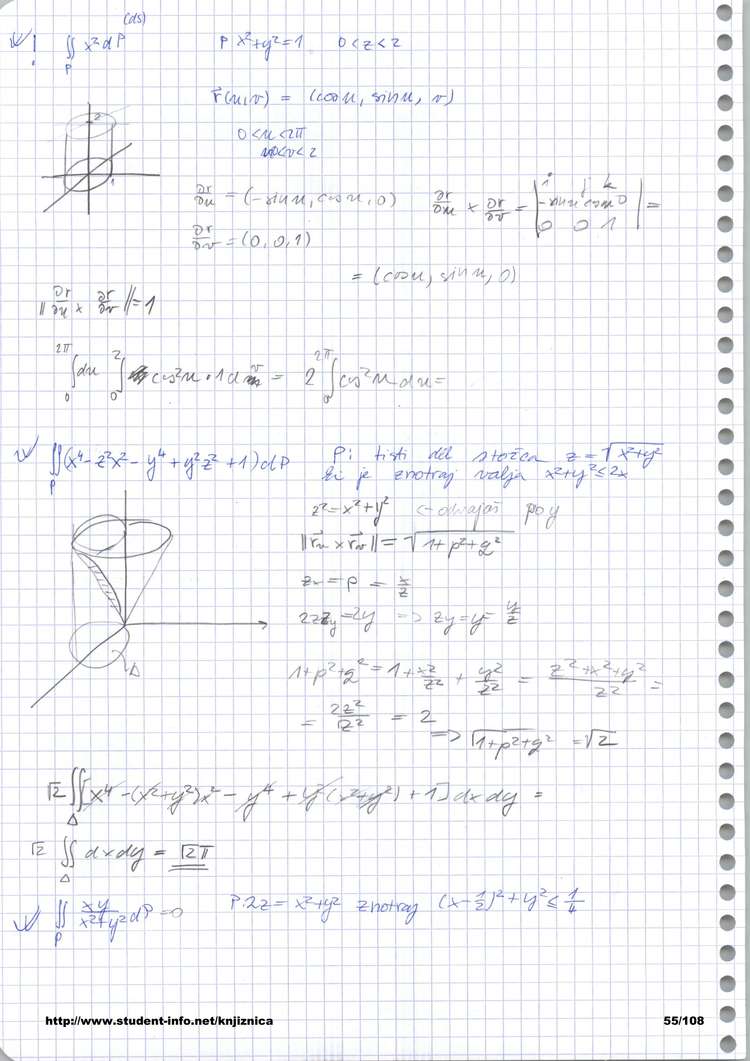 (ds)
! ∬_P x² dP    P x²+y²=1    0<z<2
r⃗(u,v) = (cos u, sin u, v)
0<u<2π
0<v<2
2
1
∂r/∂u = (-sin u, cos u, 0)    ∂r/∂u × ∂r/∂v = | i j k ; -sin u cos u 0 ; 0 0 1 | =
∂r/∂v = (0, 0, 1)
= (cos u, sin u, 0)
‖∂r/∂u × ∂r/∂v‖ = 1
∫_0^{2π} du ∫_0^2 cos²u · 1 dv = 2 ∫_0^{2π} cos²u du =
∬_P (x⁴ - z²x² - y⁴ + y²z² + 1) dP    P: tisti del stožca z = √(x²+y²)
ki je znotraj valja x²+y² ≤ 2x
z² = x²+y² ← odvajaš po y
‖r⃗_u × r⃗_v‖ = √(1+p²+q²)
z_x = p = x/z
2zz_y = 2y ⇒ z_y = y = y/z
Δ
1+p²+q² = 1 + x²/z² + y²/z² = (z²+x²+y²)/z² =
= 2z²/z² = 2
⇒ √(1+p²+q²) = √2
√2 ∬_Δ [x⁴ - (x²+y²)x² - y⁴ + y²(x²+y²) + 1] dx dy =
√2 ∬_Δ dx dy = √2 π
∬_P xy/(x²+y²) dP = 0    P: 2z = x²+y² znotraj (x-1/2)² + y² ≤ 1/4
http://www.student-info.net/knjiznica    55/108